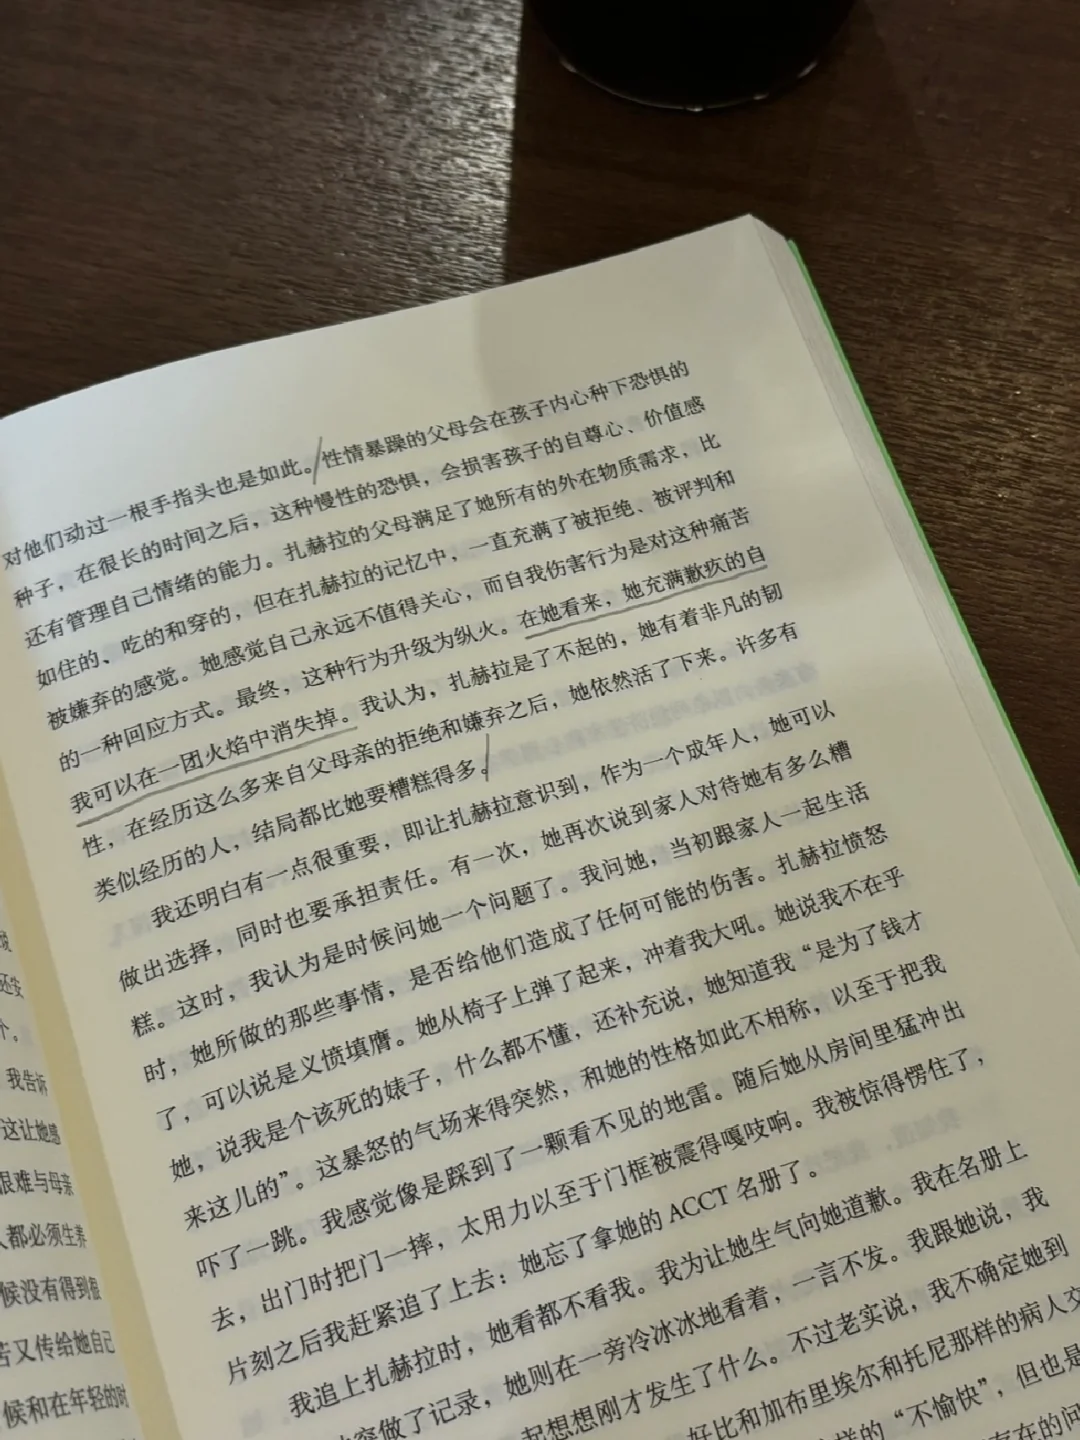 性情暴躁的父母会在孩子内心种下恐惧的
对他们动过一根手指头也是如此。
种子，在很长的时间之后，这种慢性的恐惧，会损害孩子的自尊心、价值感
还有管理自己情绪的能力。扎赫拉的父母满足了她所有的外在物质需求，比
如住的、吃的和穿的，但在扎赫拉的记忆中，一直充满了被拒绝、被评判和
被嫌弃的感觉。她感觉自己永远不值得关心，而自我伤害行为是对这种痛苦
的一种回应方式。最终，这种行为升级为纵火。在她看来，她充满歉疚的自
我可以在一团火焰中消失掉。我认为，扎赫拉是了不起的，她有着非凡的韧
性，在经历这么多来自父母亲的拒绝和嫌弃之后，她依然活了下来。许多有
类似经历的人，结局都比她要糟糕得多。
我还明白有一点很重要，即让扎赫拉意识到，作为一个成年人，她可以
做出选择，同时也要承担责任。有一次，她再次说到家人对待她有多么糟
糕。这时，我认为是时候问她一个问题了。我问她，当初跟家人一起生活
时，她所做的那些事情，是否给他们造成了任何可能的伤害。扎赫拉愤怒
了，可以说是义愤填膺。她从椅子上弹了起来，冲着我大吼。她说我不在乎
她，说我是个该死的婊子，什么都不懂，还补充说，她知道我“是为了钱才
来这儿的”。这暴怒的气场来得突然，和她的性格如此不相称，以至于把我
吓了一跳。我感觉像是踩到了一颗看不见的地雷。随后她从房间里猛冲出
去，出门时把门一摔，太用力以至于门框被震得嘎吱响。我被惊得愣住了，
片刻之后我赶紧追了上去：她忘了拿她的 ACCT 名册了。
我追上扎赫拉时，她看都不看我。我为让她生气向她道歉。我在名册上
突做了记录，她则在一旁冷冰冰地看着，一言不发。我跟她说，我
起想想刚才发生了什么。不过老实说，我不确定她到
好比和加布里埃尔和托尼那样的病人交
样的“不愉快”，但也是
存在的问
还安
个。
我告诉
这让她感
很难与母亲
人都必须生养
候没有得到
苦又传给她自己
候和在年轻的时